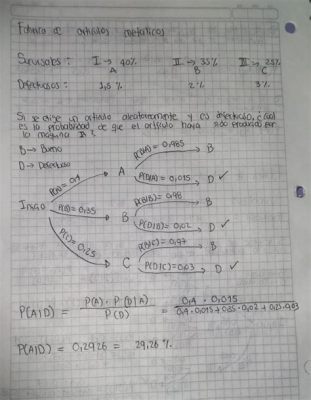 Fábrica de artículos metálicos
I → 40% II → 35% III → 25%
A B C
Defectuosos: 1,5% 2% 3%
Si se elige un artículo aleatoriamente y es defectuoso, ¿cuál
es la probabilidad de que el artículo haya sido producido por
la máquina
B → Bueno
D → Defectuoso
P(A)=0,4
A
P(B|A)=0,985
B
P(D|A)=0,015
D ✓
P(B)=0,35
B
P(B|B)=0,98
B
P(D|B)=0,02
D ✓
P(C)=0,25
C
P(B|C)=0,97
B
P(D|C)=0,03
D ✓
P(A|D) = P(A) · P(D|A) / P(D) = 0,4 · 0,015 / 0,4 · 0,015 + 0,35 · 0,02 + 0,25 · 0,03
P(A|D) = 0,2926 = 29,26 %.